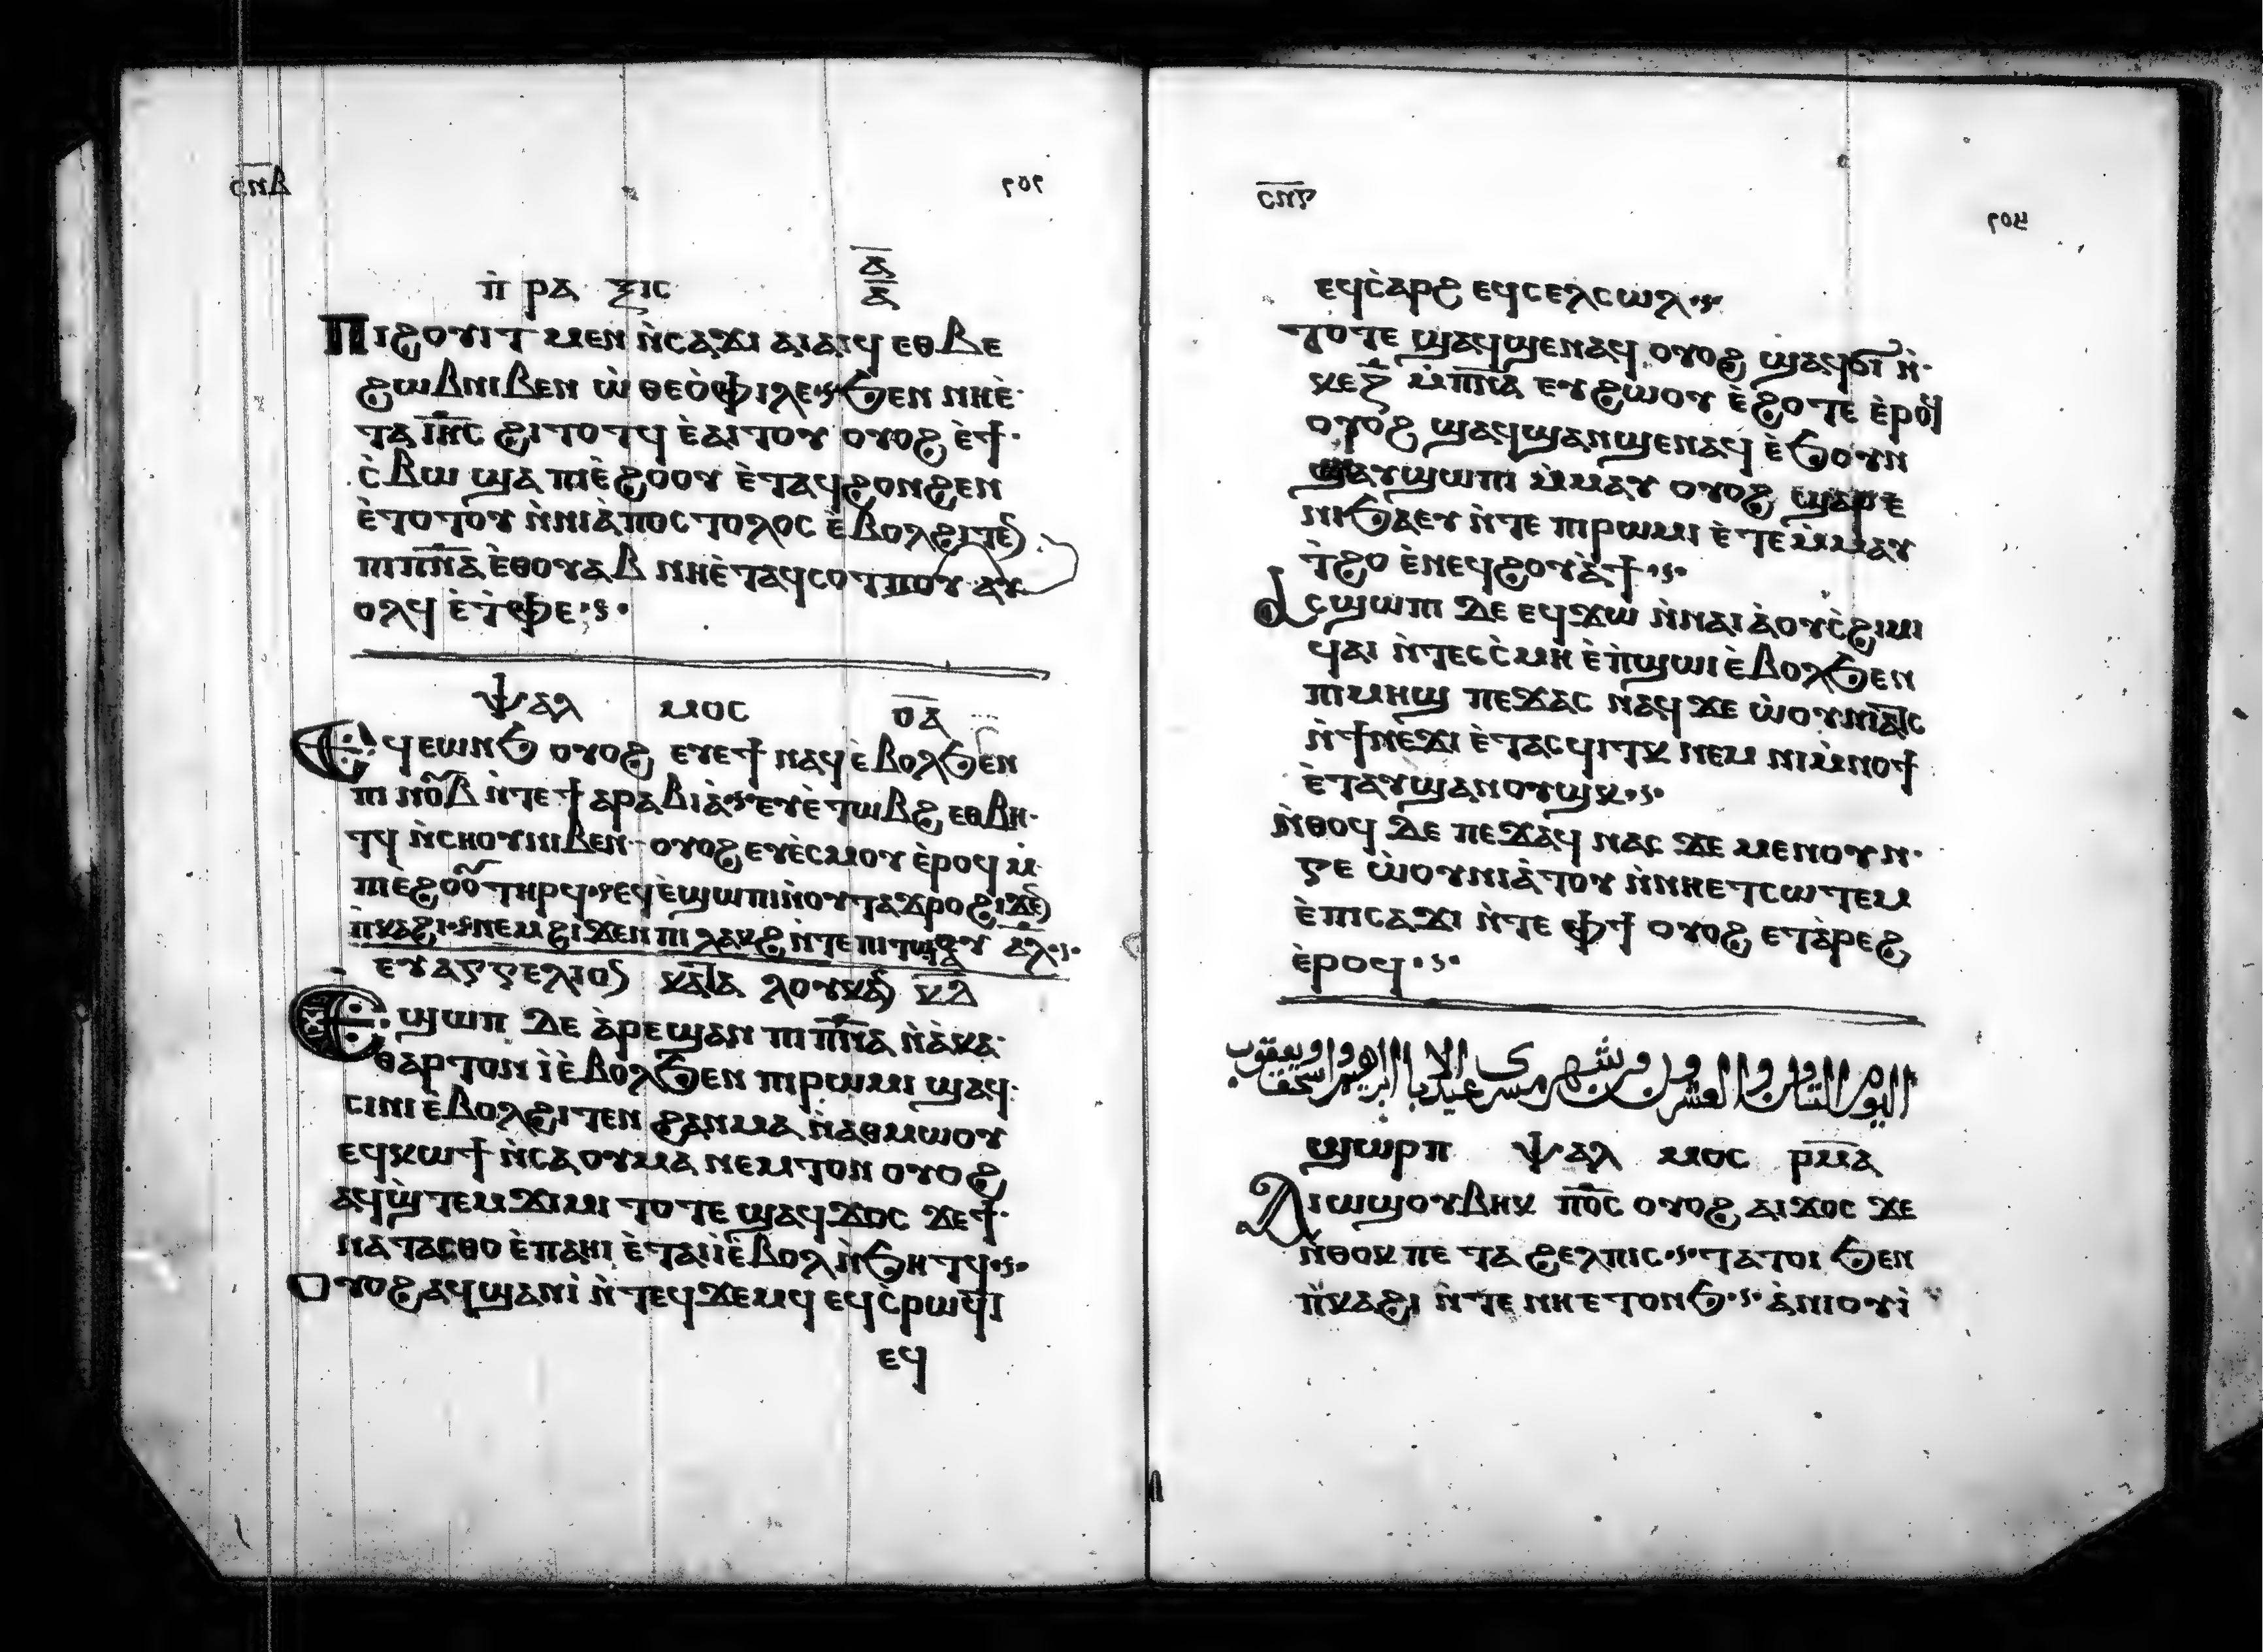 ⲡ̀ⲣⲁⲝⲓⲥ ⲁ̅ ⲁ̅
Ⲡⲓϩⲟⲩⲓⲧ ⲙⲉⲛ ⲛ̀ⲥⲁϫⲓ ⲁⲓⲁⲓϥ ⲉⲑⲃⲉ
ϩⲱⲃⲛⲓⲃⲉⲛ ⲱ̀ ⲑⲉⲟ̀ⲫⲓⲗⲉ ϧⲉⲛ ⲛⲏⲉ̀
ⲧⲁ ⲓⲏ̅ⲥ̅ ϩⲓⲧⲟⲧϥ ⲉ̀ⲁⲓⲧⲟⲩ ⲟⲩⲟϩ ⲉ̀ϯ
ⲥ̀ⲃⲱ ϣⲁ ⲡⲓⲉ̀ϩⲟⲟⲩ ⲉ̀ⲧⲁϥϩⲟⲛϩⲉⲛ
ⲉ̀ⲧⲟⲧⲟⲩ ⲛ̀ⲛⲓⲁ̀ⲡⲟⲥⲧⲟⲗⲟⲥ ⲉ̀ⲃⲟⲗϩⲓⲧⲉⲛ
ⲡⲓⲡⲛ̅ⲁ̅ ⲉ̀ⲑⲟⲩⲁⲃ ⲛⲏⲉ̀ⲧⲁϥⲥⲟⲧⲡⲟⲩ ⲁⲩ
ⲟⲗϥ ⲉ̀ⲧ̀ⲫⲉ
ⲯⲁⲗⲙⲟⲥ ⲟ̅ⲁ̅
Ⲉϥⲉⲱⲛϧ ⲟⲩⲟϩ ⲉⲩⲉϯ ⲛⲁϥ ⲉ̀ⲃⲟⲗϧⲉⲛ
ⲡⲓ ⲛⲟⲩⲃ ⲛ̀ⲧⲉ ϯⲁⲣⲁⲃⲓⲁ̀ ⲉⲩⲉ̀ⲧⲱⲃϩ ⲉⲑⲃⲏ
ⲧϥ ⲛ̀ⲥⲏⲟⲩⲛⲓⲃⲉⲛ ⲟⲩⲟϩ ⲉⲩⲉ̀ⲥⲙⲟⲩ ⲉ̀ⲣⲟϥ ⲙ̀
ⲡⲓⲉϩⲟⲟⲩ ⲧⲏⲣϥ ⲉϥⲉ̀ϣⲱⲡⲓ ⲛ̀ⲟⲩⲧⲁϫⲣⲟ ϩⲓϫⲉⲛ
ⲡ̀ⲕⲁϩⲓ ⲛⲉⲙ ϩⲓϫⲉⲛ ⲡⲓ ⲗⲁⲕϩ ⲛ̀ⲧⲉ ⲡⲓⲧⲱⲟⲩ ⲁ̅ⲗ̅
ⲉⲩⲁⲅⲅⲉⲗⲓⲟⲛ ⲕⲁⲧⲁ ⲗⲟⲩⲕⲁⲛ ⲕ̅ⲗ̅
Ⲉϣⲱⲡ ⲇⲉ ⲁ̀ⲣⲉϣⲁⲛ ⲡⲓⲡⲛ̅ⲁ̅ ⲛ̀ⲁ̀ⲕⲁ
ⲑⲁⲣⲧⲟⲛ ⲓ̀ ⲉ̀ⲃⲟⲗϧⲉⲛ ⲡⲓⲣⲱⲙⲓ ϣⲁϥ
ⲥⲓⲛⲓ ⲉ̀ⲃⲟⲗϩⲓⲧⲉⲛ ϩⲁⲛⲙⲁ ⲛ̀ⲁⲑⲙⲱⲟⲩ
ⲉϥⲕⲱϯ ⲛ̀ⲥⲁ ⲟⲩⲙⲁ ⲛⲉⲙⲧⲟⲛ ⲟⲩⲟϩ
ⲁϥϣ̀ⲧⲉⲙϫⲓⲙⲓ ⲧⲟⲧⲉ ϣⲁϥϫⲟⲥ ϫⲉ ϯ
ⲛⲁⲧⲁⲥⲑⲟ ⲉ̀ⲡⲁⲏⲓ ⲉ̀ⲧⲁⲓⲓ̀ ⲉ̀ⲃⲟⲗⲛ̀ϧⲏⲧϥ
Ⲟⲩⲟϩ ⲁϥϣⲁⲛⲓ̀ ⲛ̀ⲧⲉϥϫⲉⲙϥ ⲉϥⲥ̀ⲣⲱϥⲧ
ⲉϥ
ⲉϥⲥ̀ⲁⲣϩ ⲉϥⲥⲉⲗⲥⲱⲗ
ⲧⲟⲧⲉ ϣⲁϥϣⲉⲛⲁϥ ⲟⲩⲟϩ ϣⲁϥϭⲓ ⲛ̀
ⲕⲉⲍ̅ ⲙ̀ⲡⲛ̅ⲁ̅ ⲉⲩϩⲱⲟⲩ ⲉ̀ϩⲟⲧⲉ ⲉ̀ⲣⲟϥ
ⲟⲩⲟϩ ϣⲁϥϣⲁⲛϣⲉⲛⲁϥ ⲉ̀ϧⲟⲩⲛ
ϣⲁⲩϣⲱⲡⲓ ⲙ̀ⲙⲁⲩ ⲟⲩⲟϩ ϣⲁⲣⲉ
ⲛⲓϧⲁⲉⲩ ⲛ̀ⲧⲉ ⲡⲓⲣⲱⲙⲓ ⲉ̀ⲧⲉⲙⲙⲁⲩ
ⲧ̀ϩⲟ ⲉ̀ⲛⲉϥϩⲟⲩⲁ̀ϯ
Ⲁⲥϣⲱⲡⲓ ⲇⲉ ⲉϥϫⲱ ⲛ̀ⲛⲁⲓ ⲁ̀ⲟⲩⲥ̀ϩⲓⲙⲓ
ϥⲁⲓ ⲛ̀ⲧⲉⲥⲥ̀ⲙⲏ ⲉ̀ⲡ̀ϣⲱⲓ ⲉ̀ⲃⲟⲗϧⲉⲛ
ⲡⲓⲙⲏϣ ⲡⲉϫⲁⲥ ⲛⲁϥ ϫⲉ ⲱ̀ⲟⲩⲛⲓⲁⲧⲥ
ⲛ̀ϯⲛⲉϫⲓ ⲉ̀ⲧⲁⲥϥⲓⲧⲕ ⲛⲉⲙ ⲛⲓⲙ̀ⲛⲟϯ
ⲉ̀ⲧⲁⲩϣⲁⲛⲟⲩϣⲕ
ⲛ̀ⲑⲟϥ ⲇⲉ ⲡⲉϫⲁϥ ⲛⲁⲥ ϫⲉ ⲙⲉⲛⲟⲩⲛ
ⲅⲉ ⲱ̀ⲟⲩⲛⲓⲁ̀ⲧⲟⲩ ⲛ̀ⲛⲏⲉⲧⲥⲱⲧⲉⲙ
ⲉ̀ⲡⲓⲥⲁϫⲓ ⲛ̀ⲧⲉ ⲫϯ ⲟⲩⲟϩ ⲉⲧⲁ̀ⲣⲉϩ
ⲉ̀ⲣⲟϥ
اليوم الثامن والعشرون من شهر مسرى عيد الابا ابراهيم واسحق ويعقوب
ϣⲱⲣⲡ ⲯⲁⲗⲙⲟⲥ ⲣ̅ⲙ̅ⲁ̅
Ⲁⲓⲱϣⲟⲩⲃⲏⲕ ⲡϭ̅ⲥ̅ ⲟⲩⲟϩ ⲁⲓϫⲟⲥ ϫⲉ
ⲛ̀ⲑⲟⲕ ⲡⲉ ⲧⲁ ϩⲉⲗⲡⲓⲥ ⲧⲁⲧⲟⲓ ϧⲉⲛ
ⲡ̀ⲕⲁϩⲓ ⲛ̀ⲧⲉ ⲛⲏⲉⲧⲟⲛϧ ⲁ̀ⲛⲓⲟⲩⲓ̀